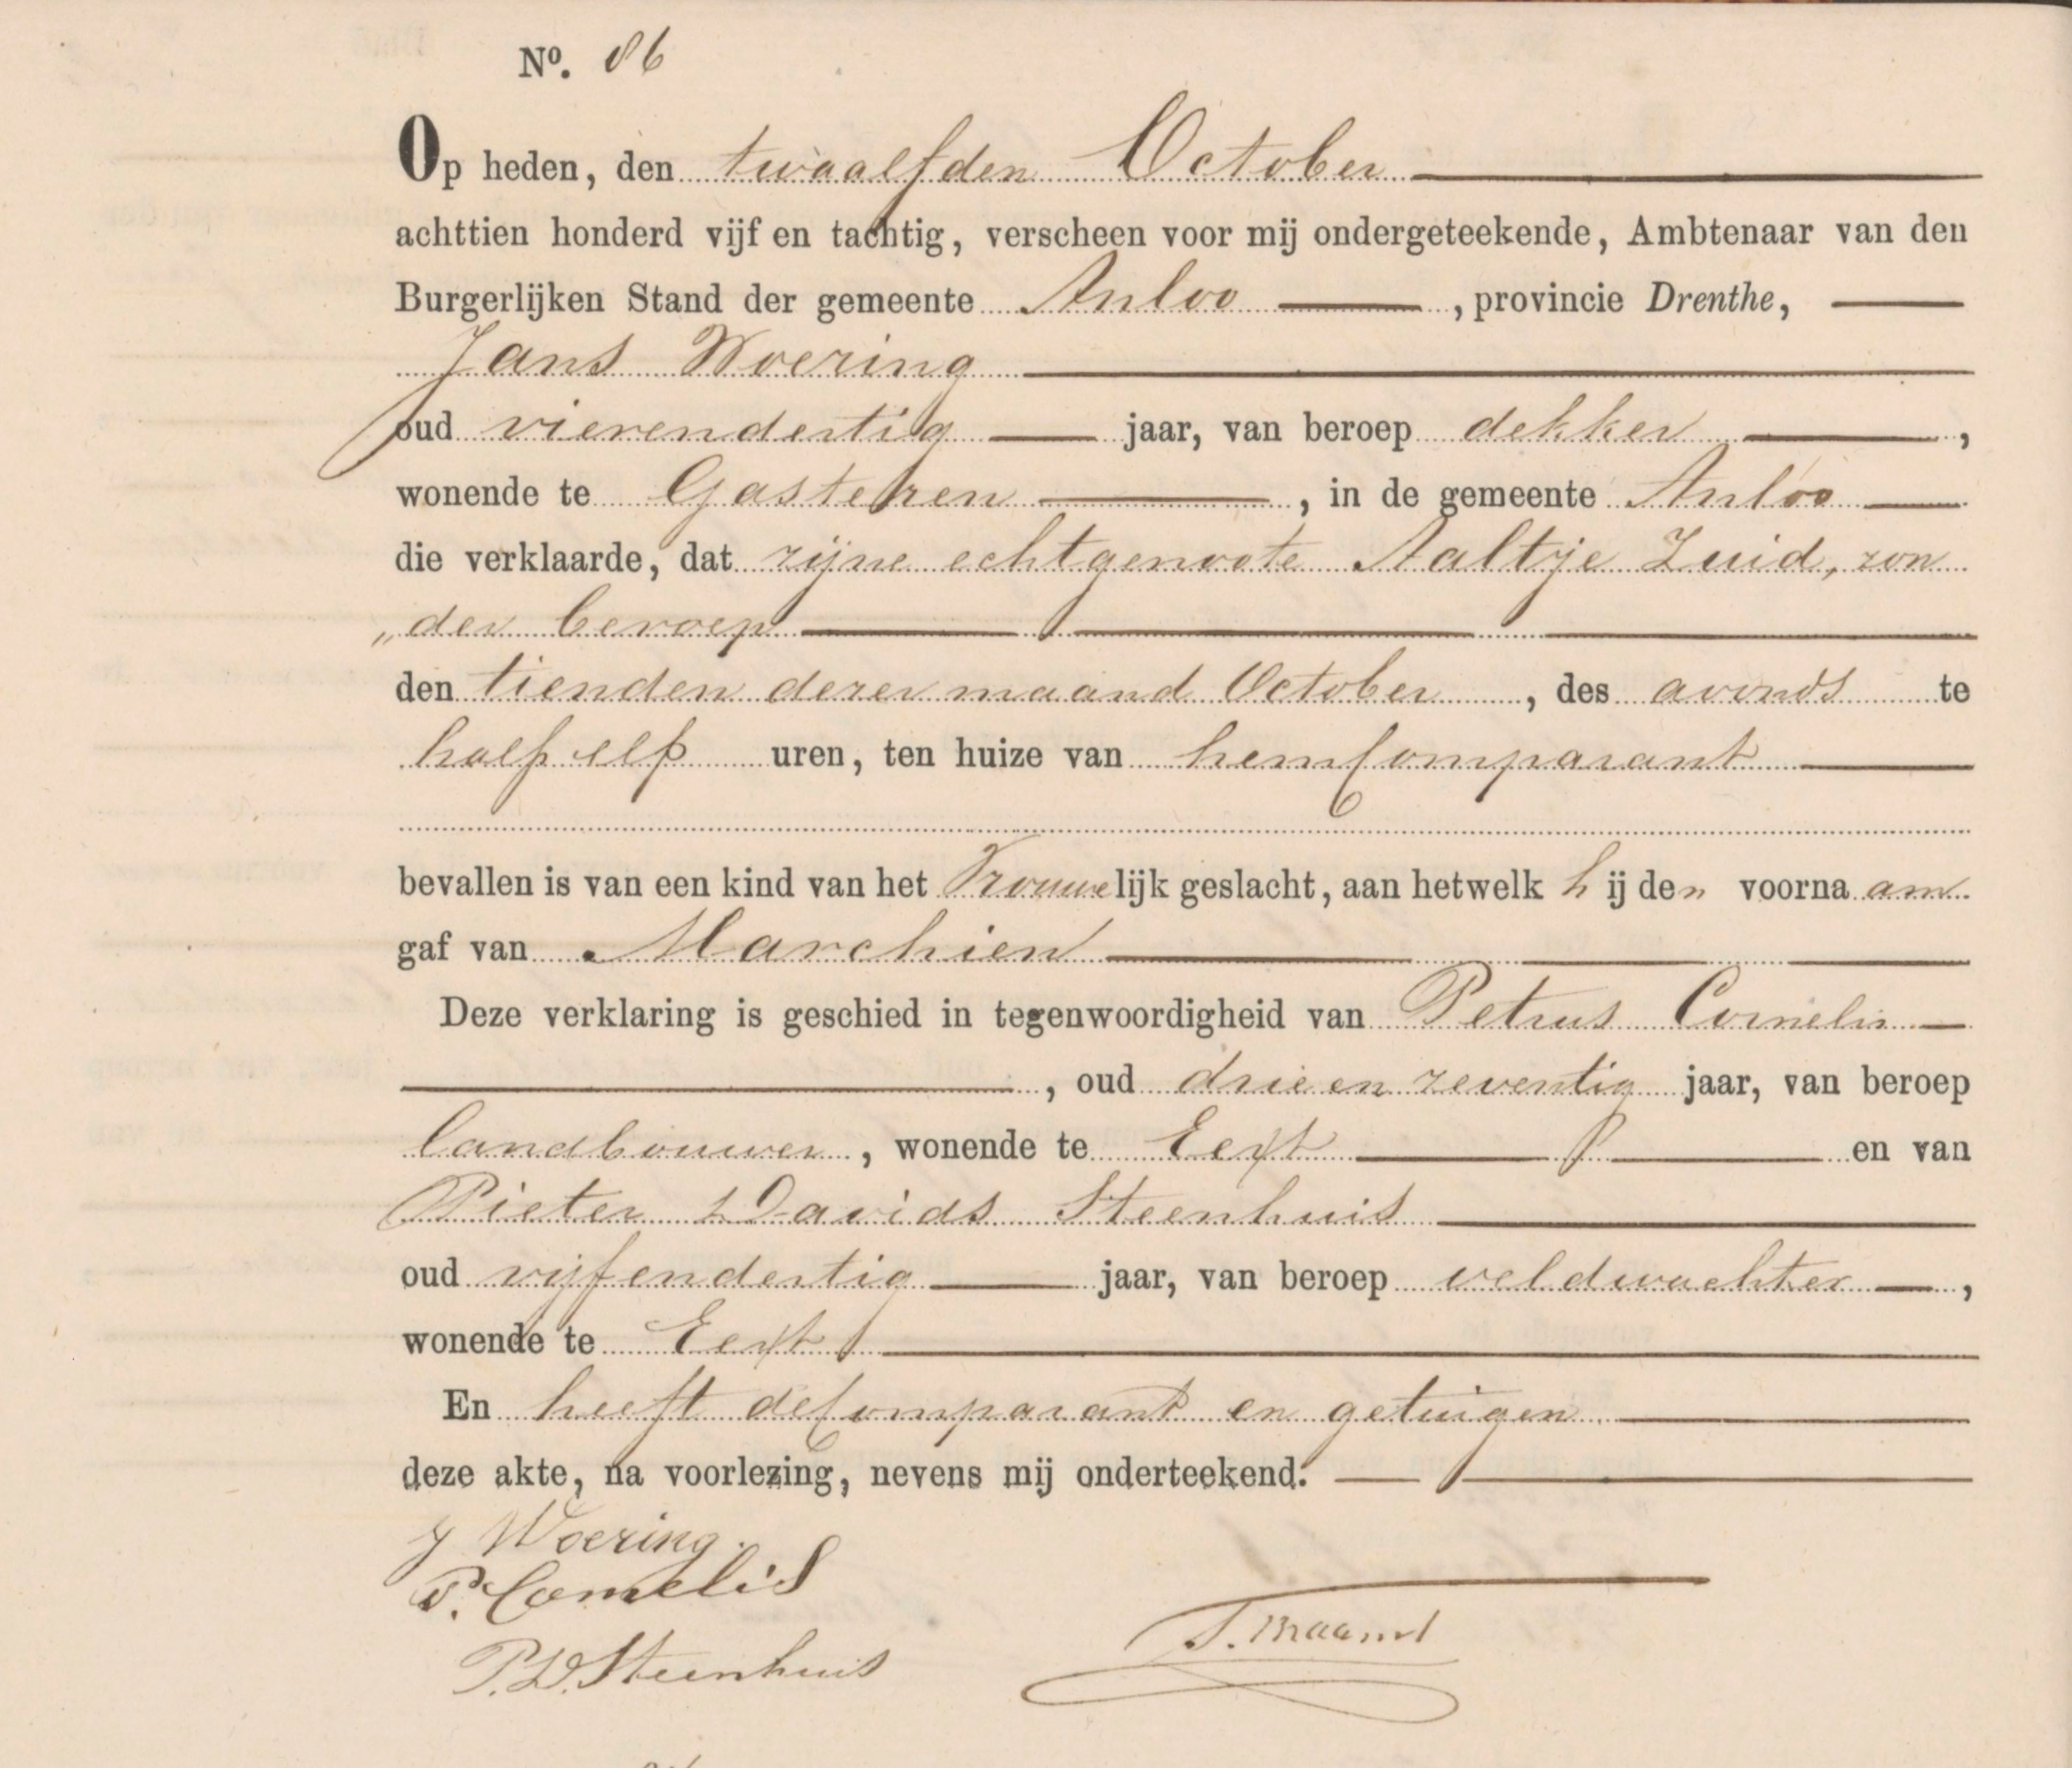 Nº. 86
Op heden, den twaalfden October
achttien honderd vijf en tachtig, verscheen voor mij ondergeteekende, Ambtenaar van den
Burgerlijken Stand der gemeente Anloo, provincie Drenthe,
Jans Woering
oud vierendertig jaar, van beroep dekker,
wonende te Gasteren, in de gemeente Anloo
die verklaarde, dat zijne echtgenoote Aaltje Zuid, zon
„der beroep
den tienden dezer maand October, des avonds te
half elf uren, ten huize van hem Comparant
bevallen is van een kind van het Vrouwelijk geslacht, aan hetwelk hij den voornaam
gaf van Marchien
Deze verklaring is geschied in tegenwoordigheid van Petrus Cornelis
, oud drie en zeventig jaar, van beroep
landbouwer, wonende te Eext en van
Pieter Davids Steenhuis
oud vijfendertig jaar, van beroep veldwachter,
wonende te Eext
En heeft de Comparant en getuigen
deze akte, na voorlezing, nevens mij onderteekend.
J Woering.
P. Cornelis
P.D. Steenhuis